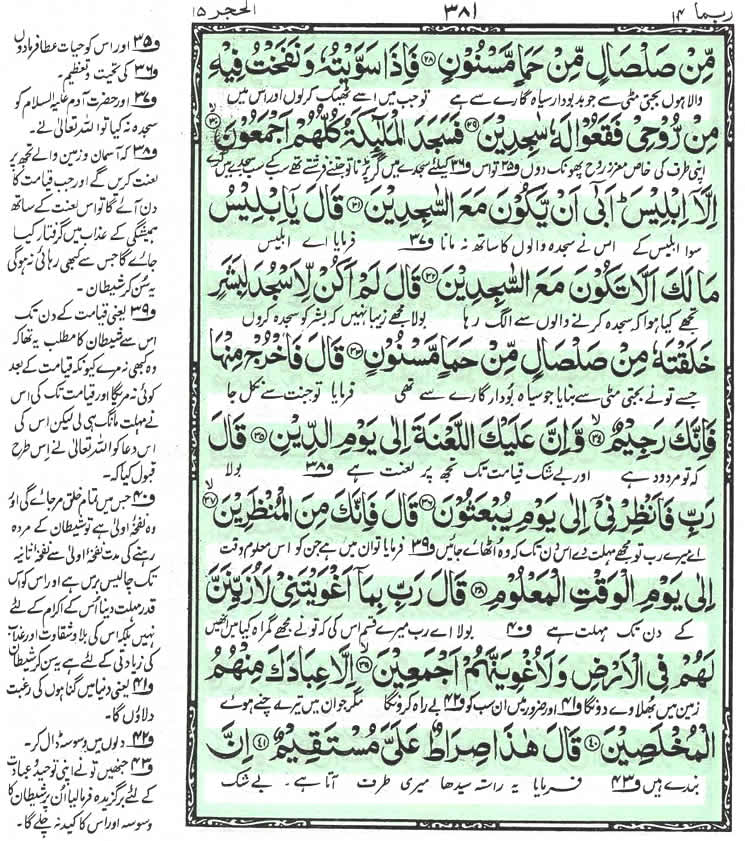 ربما ١٤
٣٨١
الحجر ١٥
مِّنْ صَلْصَالٍ مِّنْ حَمَاٍ مَّسْنُوْنٍ ﴿۲۸﴾ فَاِذَا سَوَّیْتُهٗ وَ نَفَخْتُ فِیْهِ
والا ہوں بجتی مٹی سے جو بدبودار سیاہ گارے سے ہے تو جب میں اسے ٹھیک کرلوں اور اس میں
مِنْ رُّوْحِیْ فَقَعُوْا لَهٗ سٰجِدِیْنَ ﴿۲۹﴾ فَسَجَدَ الْمَلٰٓىٕكَةُ كُلُّهُمْ اَجْمَعُوْنَ ﴿۳۰﴾
اپنی طرف کی خاص معزز روح پھونک دوں و۳۵ تو اس و۳۶ کیلئے سجدے میں گر پڑنا تو جتنے فرشتے تھے سب کے سب سجدے میں گرے
اِلَّاۤ اِبْلِیْسَ ؕ اَبٰۤى اَنْ یَّكُوْنَ مَعَ السّٰجِدِیْنَ ﴿۳۱﴾ قَالَ یٰۤاِبْلِیْسُ
سوا ابلیس کے اس نے سجدہ والوں کا ساتھ نہ مانا و۳۷ فرمایا اے ابلیس
مَا لَكَ اَلَّا تَكُوْنَ مَعَ السّٰجِدِیْنَ ﴿۳۲﴾ قَالَ لَمْ اَكُنْ لِّاَسْجُدَ لِبَشَرٍ
تجھے کیا ہوا کہ سجدہ کرنے والوں سے الگ رہا بولا مجھے زیبا نہیں کہ بشر کو سجدہ کروں
خَلَقْتَهٗ مِنْ صَلْصَالٍ مِّنْ حَمَاٍ مَّسْنُوْنٍ ﴿۳۳﴾ قَالَ فَاخْرُجْ مِنْهَا
جسے تو نے بجتی مٹی سے بنایا جو سیاہ بودار گارے سے تھی فرمایا تو جنت سے نکل جا
فَاِنَّكَ رَجِیْمٌ ﴿۳۴﴾ وَّ اِنَّ عَلَیْكَ اللَّعْنَةَ اِلٰى یَوْمِ الدِّیْنِ ﴿۳۵﴾ قَالَ
کہ تو مردود ہے اور بے شک قیامت تک تجھ پر لعنت ہے و۳۸ بولا
رَبِّ فَاَنْظِرْنِیْۤ اِلٰى یَوْمِ یُبْعَثُوْنَ ﴿۳۶﴾ قَالَ فَاِنَّكَ مِنَ الْمُنْظَرِیْنَ ﴿۳۷﴾
اے میرے رب تو مجھے مہلت دے اس دن تک کہ وہ اٹھائے جائیں و۳۹ فرمایا تو ان میں ہے جن کو اس معلوم وقت
اِلٰى یَوْمِ الْوَقْتِ الْمَعْلُوْمِ ﴿۳۸﴾ قَالَ رَبِّ بِمَاۤ اَغْوَیْتَنِیْ لَاُزَیِّنَنَّ
کے دن تک مہلت ہے و۴۰ بولا اے رب میرے قسم اس کی کہ تو نے مجھے گمراہ کیا میں انھیں
لَهُمْ فِی الْاَرْضِ وَ لَاُغْوِیَنَّهُمْ اَجْمَعِیْنَ ﴿۳۹﴾ اِلَّا عِبَادَكَ مِنْهُمُ
زمین میں بھلاوے دوں گا و۴۱ اور ضرور میں ان سب کو و۴۲ بے راہ کروں گا مگر جو ان میں تیرے چنے ہوئے
الْمُخْلَصِیْنَ ﴿۴۰﴾ قَالَ هٰذَا صِرَاطٌ عَلَیَّ مُسْتَقِیْمٌ ﴿۴۱﴾ اِنَّ
بندے ہیں و۴۳ فرمایا یہ راستہ سیدھا میری طرف آتا ہے۔ بے شک
و۳۵ اور اس کو حیات عطا فرما دوں
و۳۶ کی تحیت و تعظیم۔
و۳۷ اور حضرت آدم علیہ السلام کو
سجدہ نہ کیا تو اللہ تعالیٰ نے۔
و۳۸ کہ آسمان و زمین والے تجھ پر
لعنت کریں گے اور جب قیامت کا
دن آئے گا تو اس لعنت کے ساتھ
ہمیشگی کے عذاب میں گرفتار کیا
جائے گا جس سے کبھی رہائی نہ ہوگی
یہ سُن کر شیطان۔
و۳۹ یعنی قیامت کے دن تک
اس سے شیطان کا مطلب یہ تھا کہ
وہ کبھی نہ مرے کیونکہ قیامت کے بعد
کوئی نہ مریگا اور قیامت تک کی اس
نے مہلت مانگ ہی لی لیکن اس کی
اس دعا کو اللہ تعالیٰ نے اِس طرح
قبول کیا کہ۔
و۴۰ جس میں تمام خلق مرجائے گی اور
وہ نفخۂ اولیٰ ہے تو شیطان کے مردہ
رہنے کی مدت نفخۂ اولیٰ سے نفخۂ ثانیہ
تک چالیس برس ہے اور اس کو اس
قدر مہلت دینا اُس کے اکرام کے لئے
نہیں بلکہ اس کی بلا و شقاوت اور عذاب
کی زیادتی کے لئے ہے یہ سن کر شیطان
و۴۱ یعنی دنیا میں گناہوں کی رغبت
دلاؤں گا۔
و۴۲ دلوں میں وسوسہ ڈال کر۔
و۴۳ جنھیں تو نے اپنی توحید و عبادت
کے لئے برگزیدہ فرمالیا اُن پر شیطان کا
وسوسہ اور اس کا کید نہ چلے گا۔